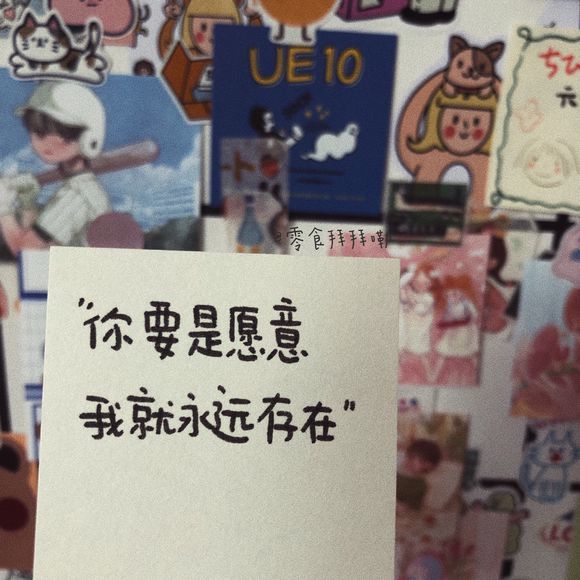 UE10
ちび
六
@零食拜拜嘴
"你要是愿意
我就永远存在"